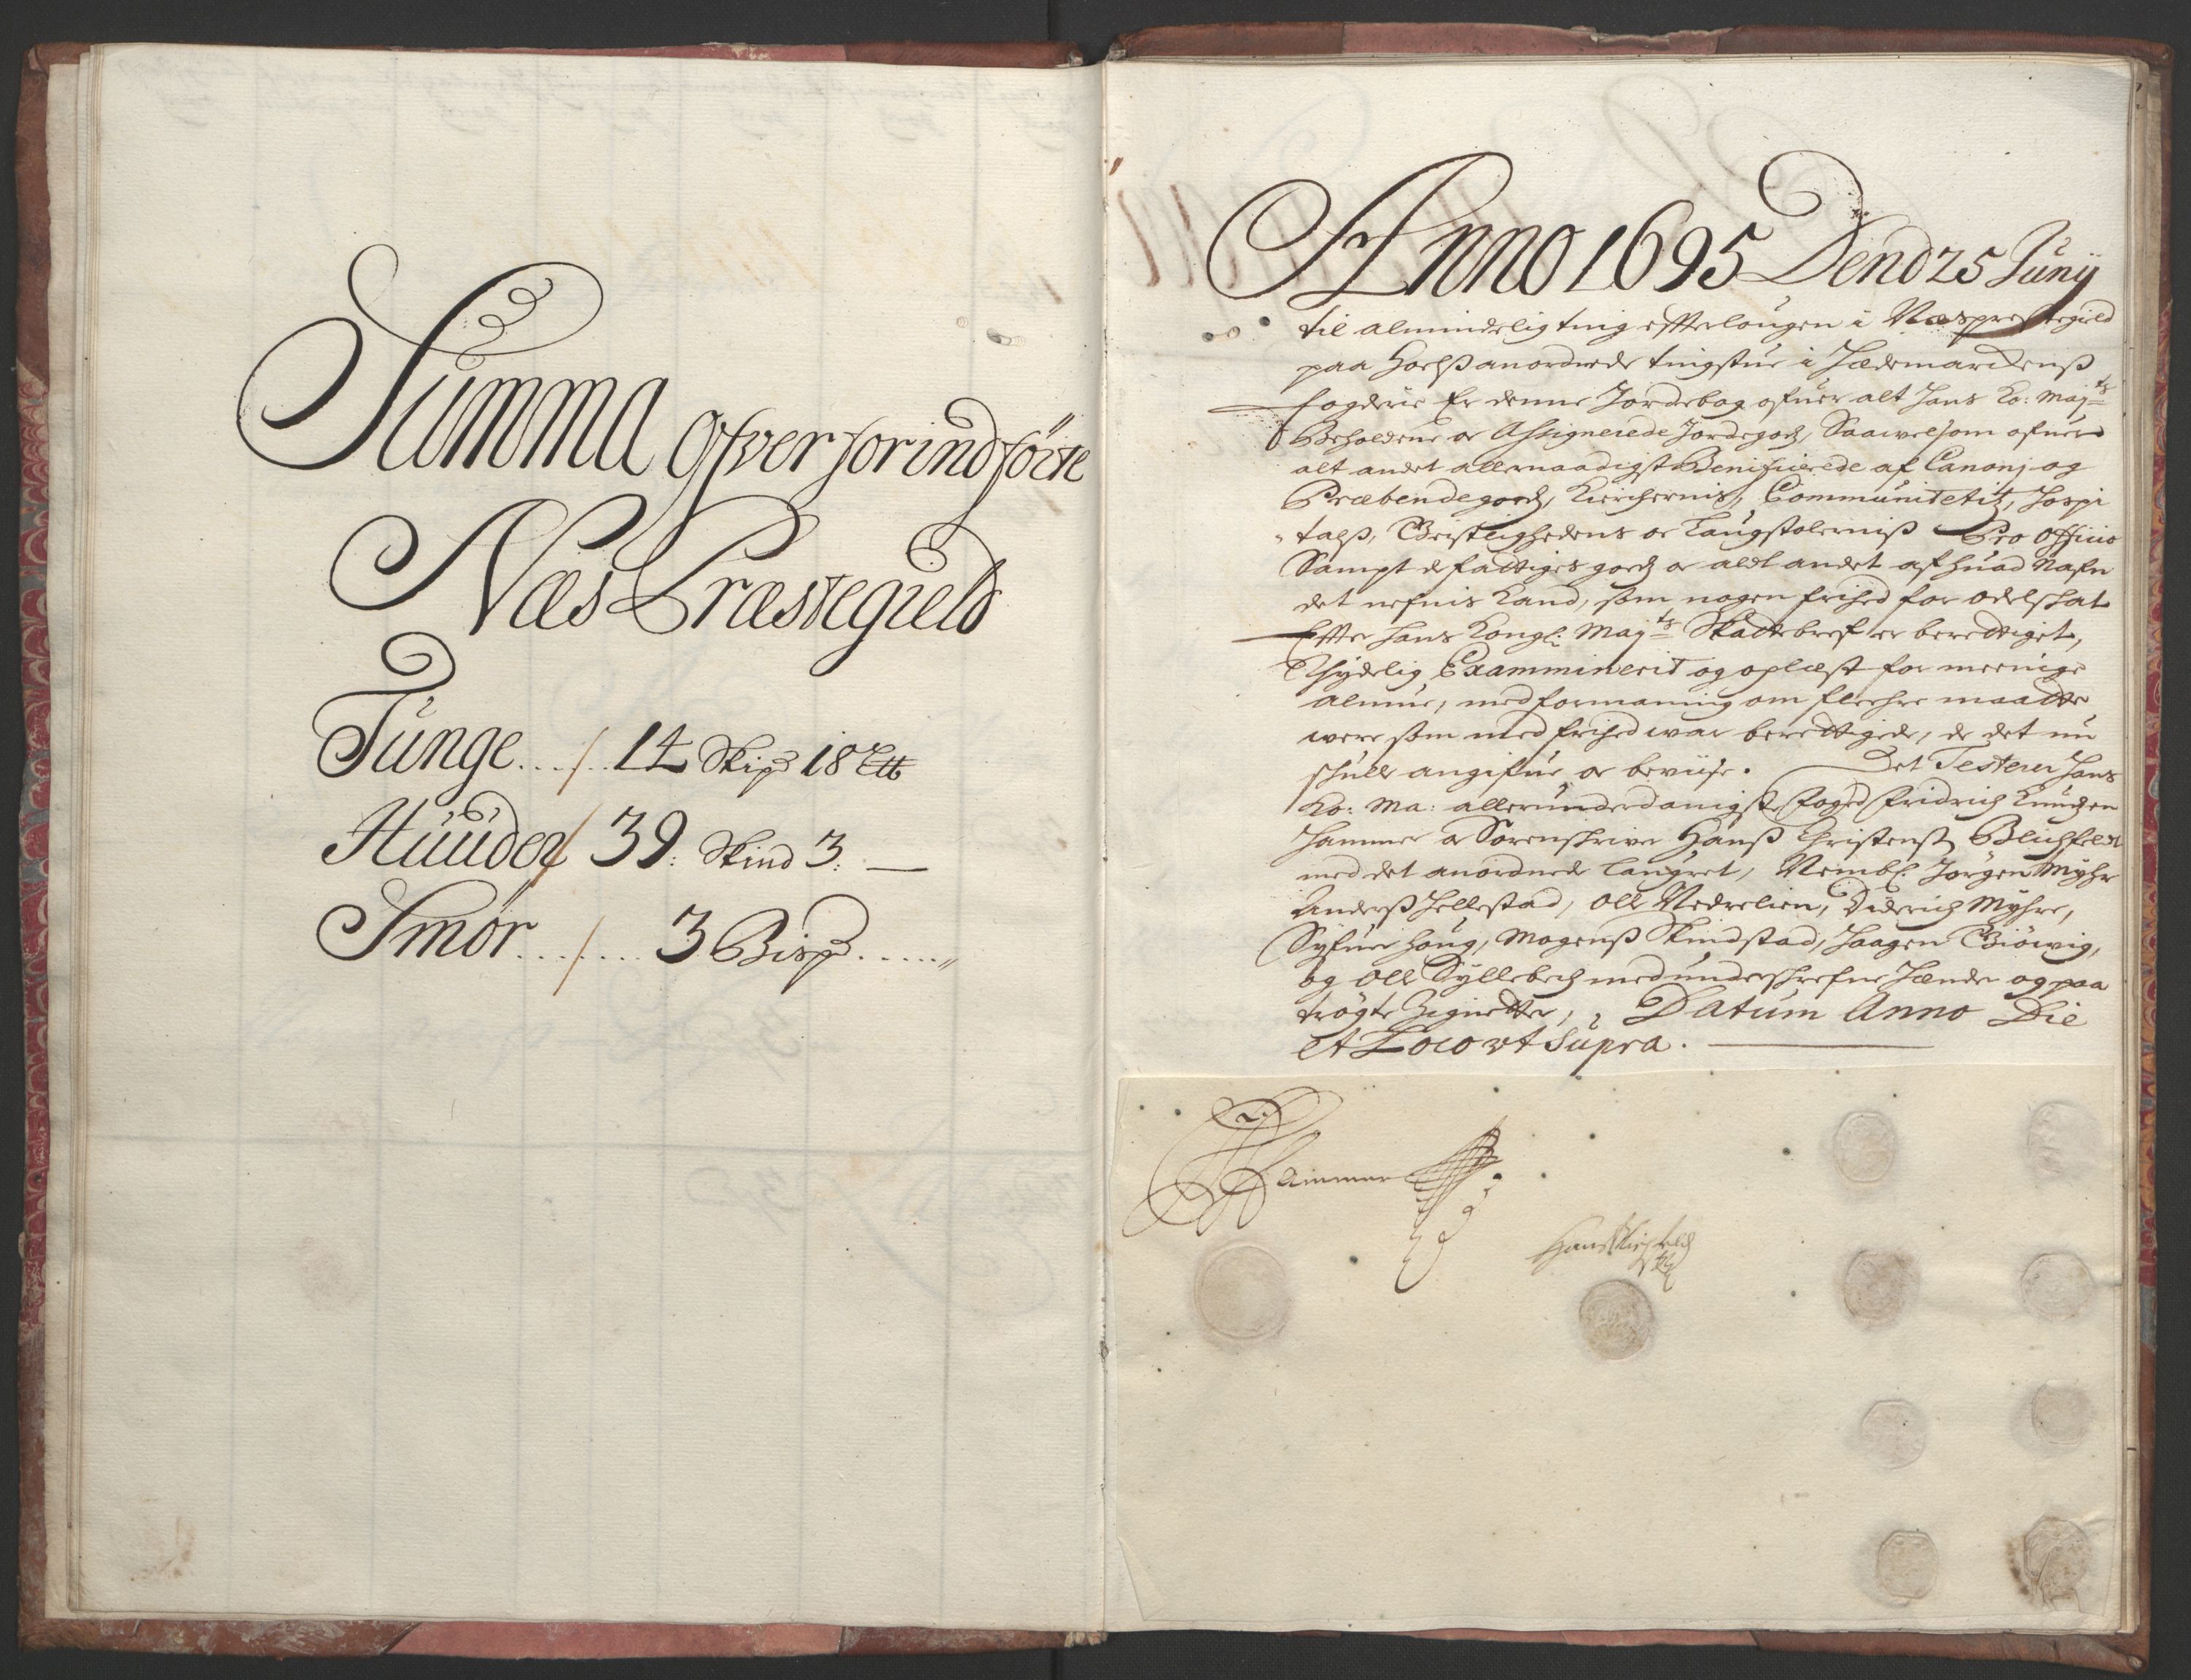 Summa Ofver forindførte
Næs Præstegield
Tunge.../...14 Skip℔ 18 L℔
Huuder/ 39: Skind 3: —
Smør.../... 3 Bisp℔......„
Anno 1695 Dend 25 Junij
til almindelig ting effter lougen i Næs prestegield
paa Hoelß anordnede tingstue i Hædemarckenß
fogderie Er denne Jordebog ofuer alt Hans Ko: Maj.ts
Beholdene oc Assignerede Jordegods, Saavelsom ofuer
alt andet allernaadigst Benificerede af Canonj og
Præbendegods, Kierckernis, Communitetis, Hospi
talß, Geistlighedens oc Laugstolerniß Pro Officio
Sampt de fattiges gods oc aldt andet af huad Nafn
det nefnis kand, som nogen frihed for odelskat
Effter Hans Kongl: Maj.ts Skattebref er berettiget,
Thydelig Examminerit og oplæst for meenige
almue, med formaning om fleehre maatte
were som med frihed war berettigede, de det nu
schulle angifue oc beviise. Det Testerer Hans
Ko: Ma: allerunderdanigste foged fridrich Knudsen
Hammer oc Sorenskriver Hanß Christenß. Blichfeldt
med det anordnede laugret, Nembl: Jørgen Myhr
Anderß Hellestad, Olle Nedrelien, Diderich Myhre,
Syfuer Houg, Mogenß Skindstad, Haagen Giøvig,
og Olle Syllebech med underschrefne Hænder og paa
trøgte Zignetter, Datum Anno Die
et Loco vt Supra.
Hammer
Hans Blichfeldt